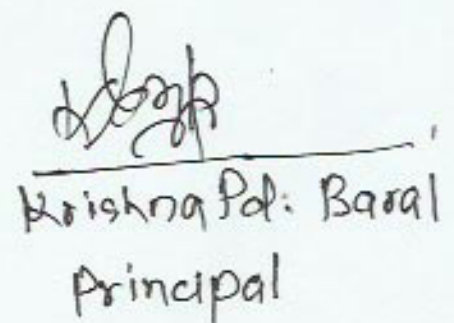 Krishna Pd. Baral
Principal